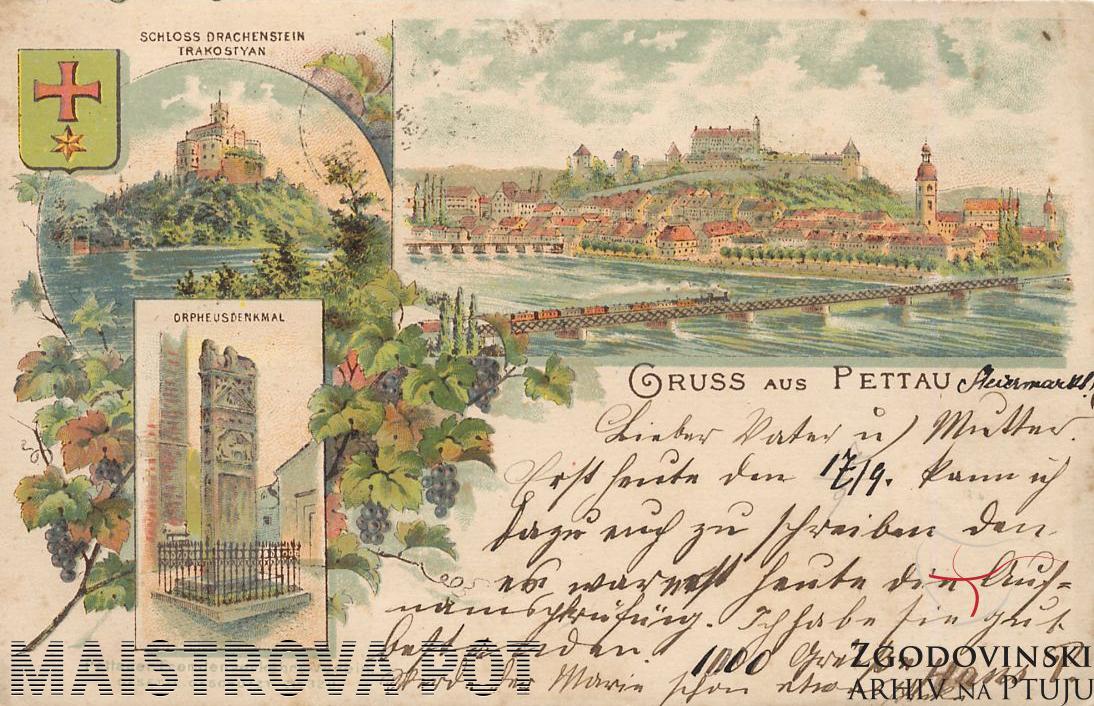 SCHLOSS DRACHENSTEIN
TRAKOSTYAN
ORPHEUSDENKMAL
GRUSS AUS PETTAU Steiermark!
Lieber Vater u Mutter.
Erst heute den 17/9. kann ich
dazu euch zu schreiben den
es war erst heute die Auf-
namsprüfung. Ich habe sie gut
bestanden. 1000 Grüße Hans
Werd der Marie schon etwas
MAISTROVA POT
ZGODOVINSKI
ARHIV NA PTUJU